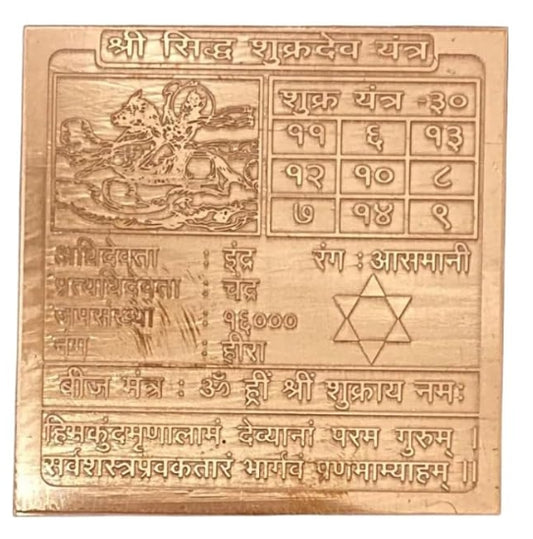 श्री सिद्ध शुक्रदेव यंत्र
शुक्र यंत्र -३०
११ ६ १३
१२ १० ८
७ १४ ९
अधिदेवता : इंद्र
रंग : आसमानी
प्रत्यधिदेवता : चंद्र
जपसंख्या : १६०००
नंग : हीरा
बीज मंत्र : ॐ ह्रीं श्रीं शुक्राय नमः
हिमकुंदमृणालामं. देव्यानां परम गुरुम् ।
सर्वशस्त्रप्रवकतारं भार्गवं प्रणमाम्याहम् ॥